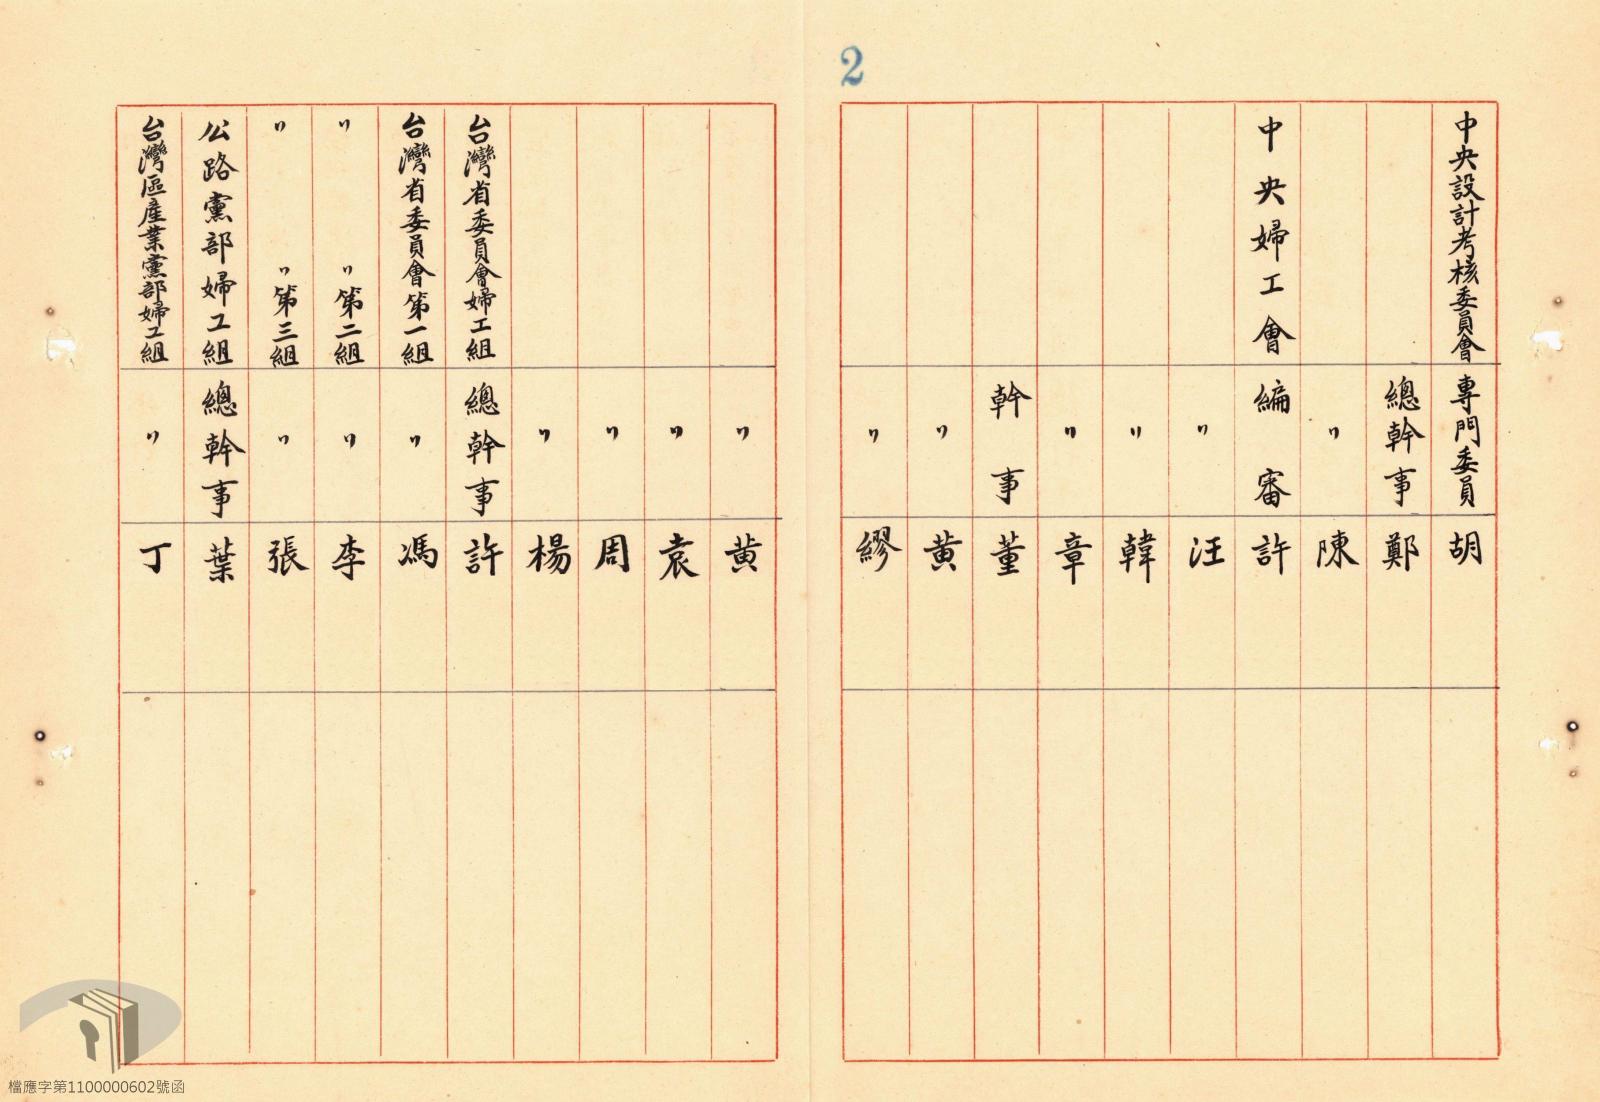 2
中央設計考核委員會 專門委員 胡
總幹事 鄭
〃 陳
中央婦工會 編審 許
〃 汪
〃 韓
〃 章
幹事 董
〃 黃
〃 繆
〃 黃
〃 袁
〃 周
〃 楊
台灣省委員會婦工組 總幹事 許
台灣省委員會第一組 〃 馮
〃 〃第二組 〃 李
〃 〃第三組 〃 張
公路黨部婦工組 總幹事 葉
台灣區產業黨部婦工組 〃 丁
檔應字第1100000602號函